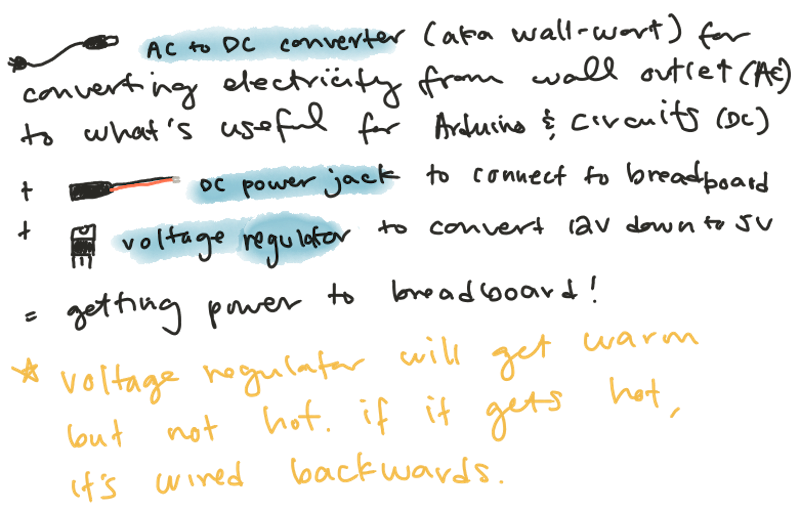 AC to DC converter (aka wall-wart) for
converting electricity from wall outlet (AC)
to what's useful for Arduino & circuits (DC)
+ DC power jack to connect to breadboard
+ voltage regulator to convert 12V down to 5V
= getting power to breadboard!
* voltage regulator will get warm
but not hot. if it gets hot,
it's wired backwards.